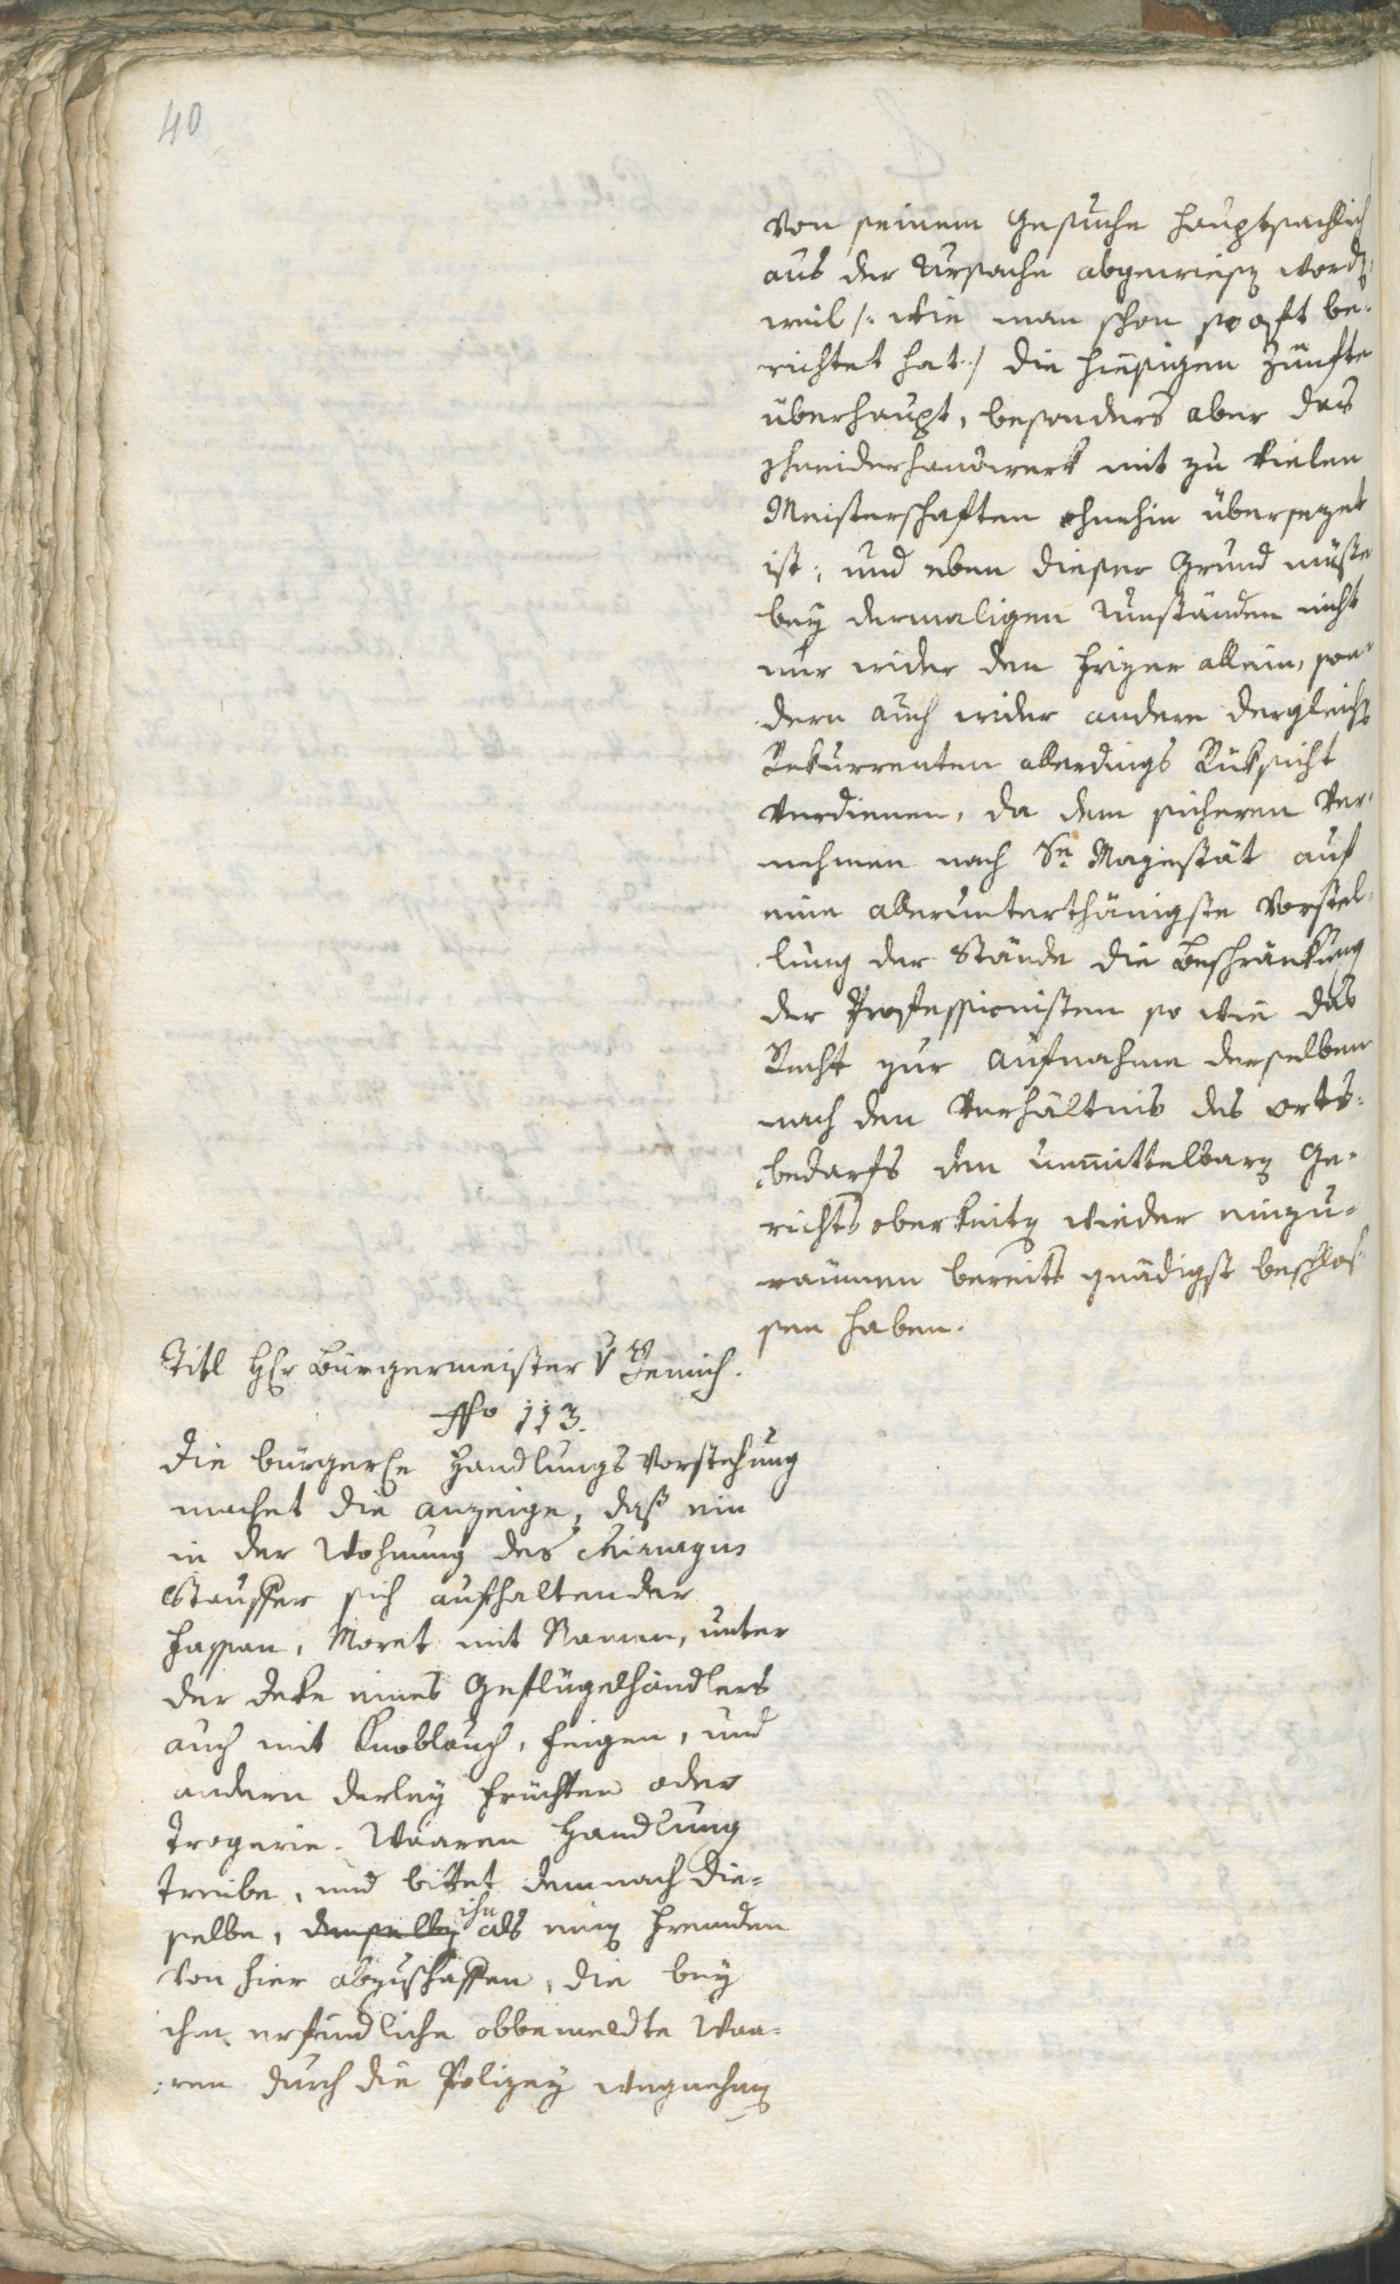 40
von seinem Gesuche hauptsachlich
aus der Ursache abgewiesen worden,
weil /: wie man schon so oft be-
richtet hat :/ die hiesigen Zünfte
überhaupt, besonders aber das
Schneiderhandwerk mit zu vielen
Meisterschaften ohnehin übersezet
ist; und eben dieser Grund müsste
bey dermaligen Umständen nicht
nur wider den allein, son-
dern auch wider andere dergleichen
Rekurrenten allerdings Rüksicht
verdienen, da dem sicheren Ver-
nehmen nach Se. Majestät auf
eine allerunterthänigste Vorstel-
lung der Stände die Beschränkung
der Professionisten so wie das
Recht zur Aufnahme derselben
nach den Verhältnis des Orts-
bedarfs den unmittelbaren Ge-
richtsoberkeiten wieder einzu-
raümen bereits gnädigst beschlos-
sen haben.
Titl Hr Bürgermeister v
No 113.
Die bürgerle Handlungs Vorstehung
machet die Anzeige, daß ein
in der Wohnung des Chirurgus
Stauffer sich aufhaltender
Moret mit Namen, unter
der Deke eines Geflügelhändlers
auch mit Knoblauch, Feigen, und
andern derley Früchten oder
Trogerie-Waaren Handlung
treibe, und bittet demnach die-
selbe, denselben ihn als einen Fremden
von hier abzuschaffen, die bey
ihm erfindliche obbemeldte Waa-
ren durch die Polizey wegnehmen